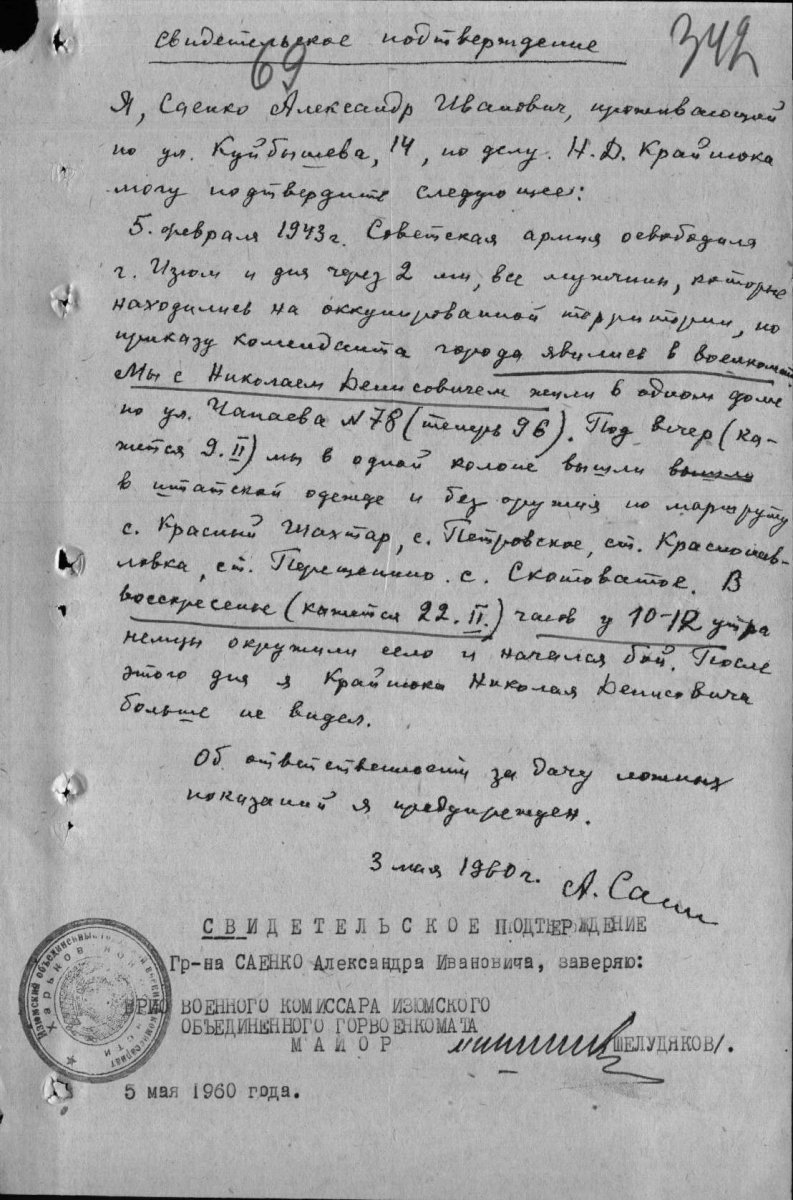 свидетельское подтверждение
342
69
Я, Саенко Александр Иванович, проживающий
по ул. Куйбышева, 14, по делу. Н.Д. Крайнюка
могу подтвердить следующее:
5. февраля 1943 г. Советская армия освободила
г. Изюм и дня через 2 мы, все мужчины, которые
находились на оккупированной территории, по
приказу коменданта города явились в военкомат.
Мы с Николаем Денисовичем жили в одном доме
по ул. Чапаева N 78 (теперь 96). Под вечер (ка-
жется 9.II) мы в одной колоне вышли вышли
в штатской одежде и без оружия по маршруту
с. Красный Шахтар, с. Петровское, ст. Краснопав-
ловка, ст. Перещепино. с. Скотоватое. В
восскресенье (кажется 22.II.) часов у 10-12 утра
немцы окружили село и начался бой. После
этого дня я Крайнюка Николая Денисовича
больше не видел.
Об ответственности за дачу ложных
показаний я предупрежден.
3 мая 1960 г. А. Саен
СВИДЕТЕЛЬСКОЕ ПОДТВЕРЖДЕНИЕ
Гр-на САЕНКО Александра Ивановича, заверяю:
ВРИО ВОЕННОГО КОМИССАРА ИЗЮМСКОГО
ОБЪЕДИНЕННОГО ГОРВОЕНКОМАТА
МАЙОР ШЕЛУДЯКОВ/.
5 мая 1960 года.
Изюмский объединенный военный комиссариат
Харьковской области